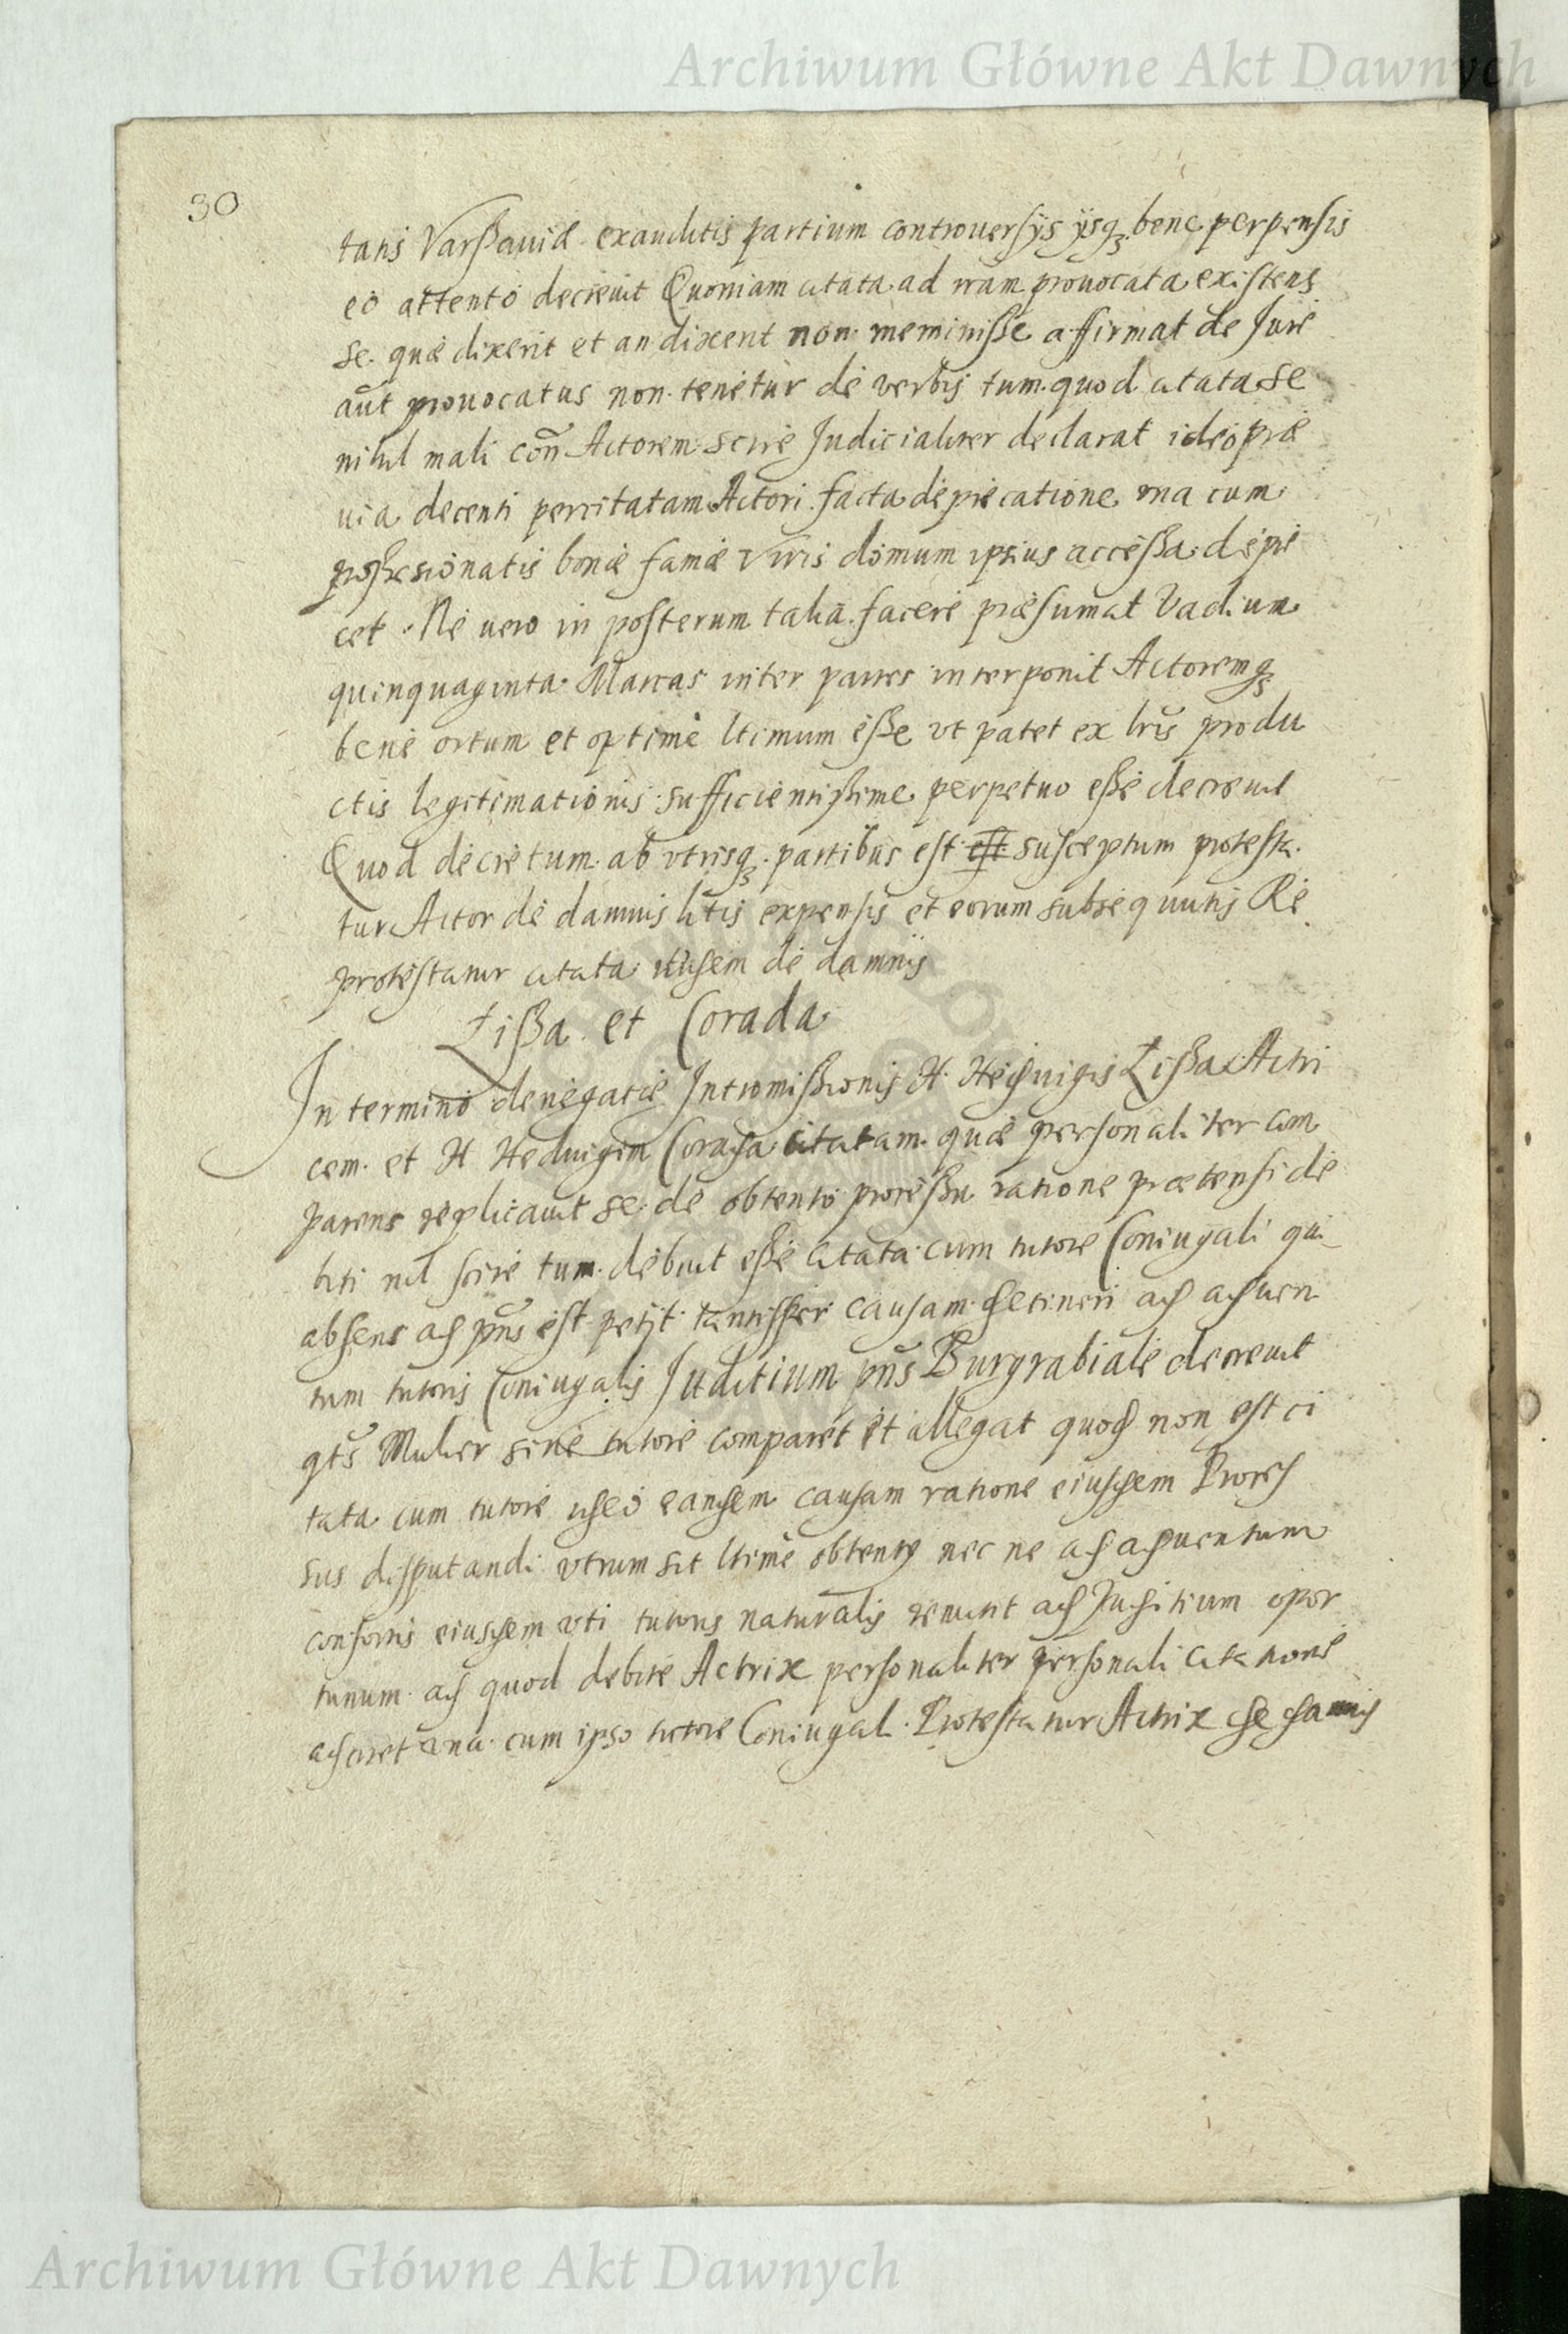 Archiwum Główne Akt Dawnych
30
tans Varßauiæ exauditis partium controuersÿs ÿsqꝫ bene perpensis
eo attento decreuit Quoniam citata ad iram prouocata existens
se quæ dixerit et an dixerit non meminisse affirmat de Jure
aut prouocatus non tenetur de verbis tum quod citata se
nihil mali con̄ Actorem scire Judicialiter declarat ideo præ
uia decenti per citatam Actori facta deprecatione vna cum
possesionatis bonæ famæ Viris domum ipsius accessa depre
cet Ne vero in posterum talia facere præsumat Vadium
quinquaginta Marcas inter partes interponit Actoremqꝫ
bene ortum et optime ltimum esse vt patet ex lris produ
ctis legitimationis sufficientissime perpetuo esse decreuit
Quod decretum ab vtrisqꝫ partibus est est susceptum protesta
tur Actor de damnis litis expensis et eorum subsequutis Re
protestatur citata itidem de damnis
Lißa et Corada
In termino denegatæ Intromissionis H Heduigis Lißa Actri
cem et H Heduigim Corada citatam quæ personaliter com
parens replicauit se de obtento processu ratione prætensi de
biti nil scire tum debuit esse citata cum tutore Coniugali qui
absens ad pn̄s est petÿt tantisper causam detineri ad aduen
tum tutoris Coniugalis Juditium pn̄s Burgrabiale decreuit
qts Mulier sine tutore comparet et allegat quod non est ci
tata cum tutore ideo eandem causam ratione eiusdem Proces
sus disputandi vtrum sit ltime obtentus nec ne ad aduentum
consortis eiusdem vti tutoris naturalis remittit ad Juditium opor
tunum ad quod debite Actrix personaliter personali citatione
adciet vna cum ipso tutore Coniugali Protestatur Actrix de damnis
Archiwum Główne Akt Dawnych